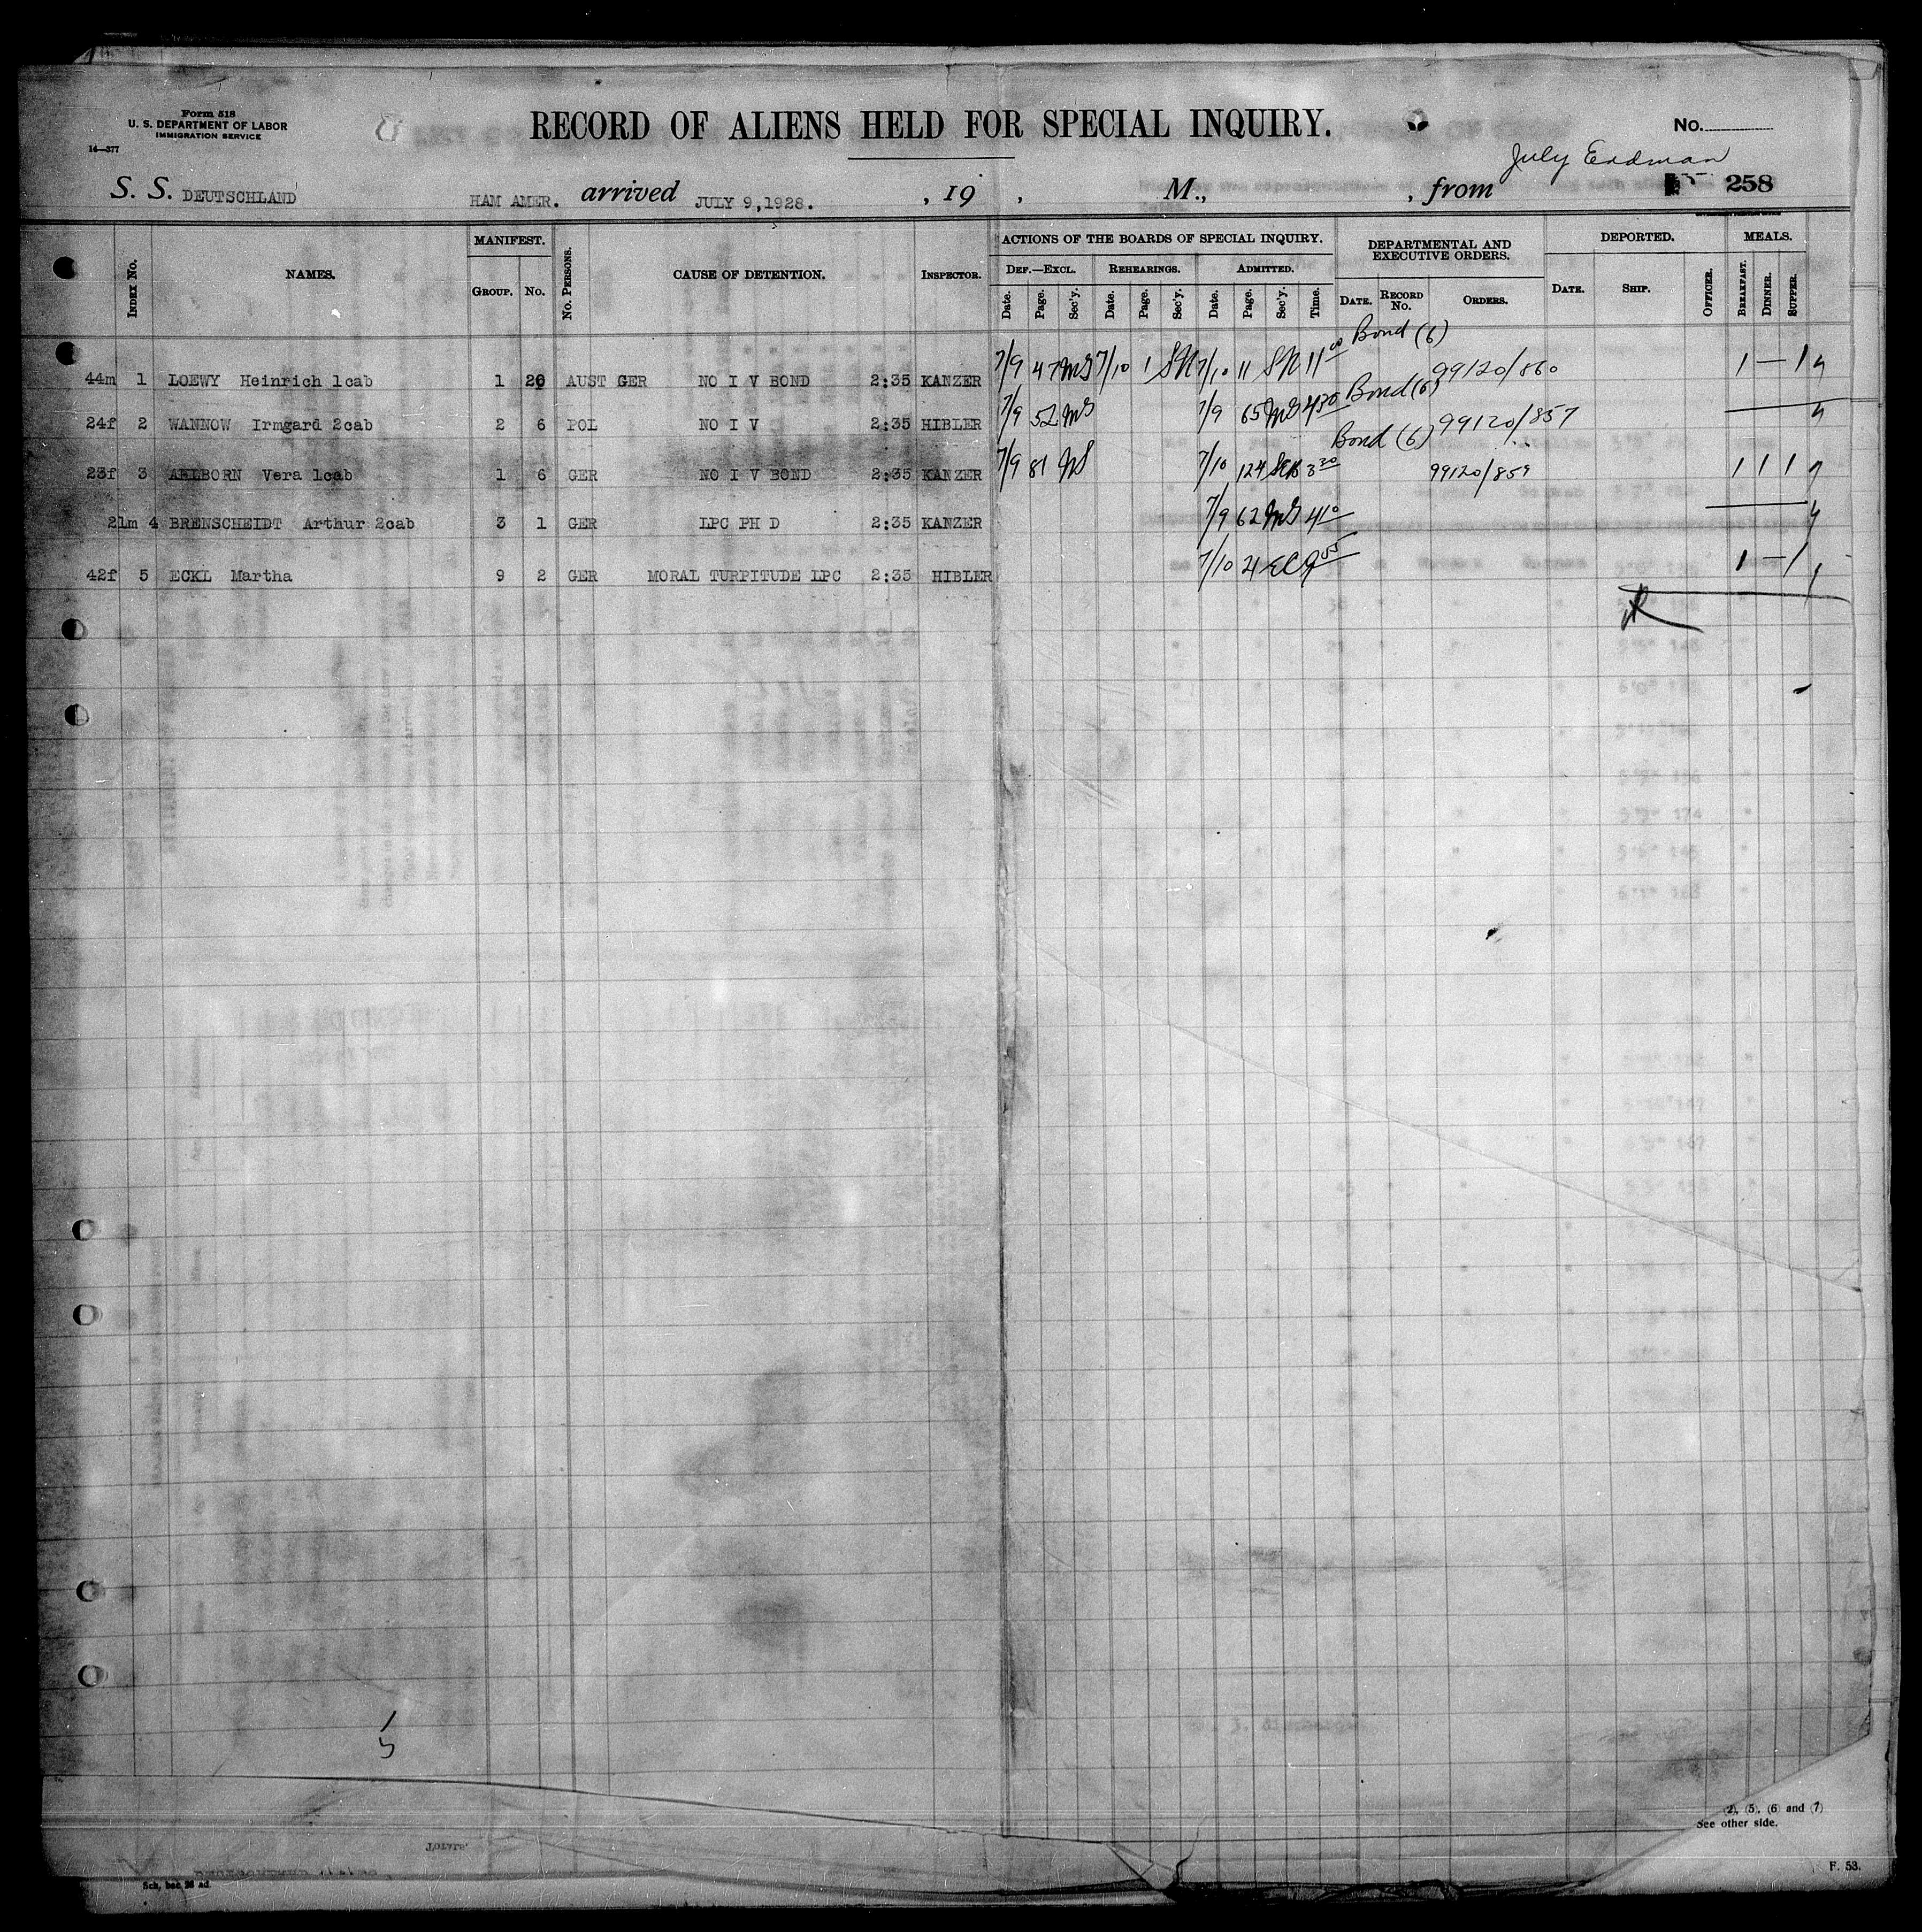 Form 518
U. S. DEPARTMENT OF LABOR
IMMIGRATION SERVICE
14—377
RECORD OF ALIENS HELD FOR SPECIAL INQUIRY.
No.
July Erdman
S. S. DEUTSCHLAND HAM AMER. arrived JULY 9,1928. , 19 , M., , from 258
INDEX No. NAMES. MANIFEST. GROUP. No. No. PERSONS. CAUSE OF DETENTION. INSPECTOR.
ACTIONS OF THE BOARDS OF SPECIAL INQUIRY. DEPARTMENTAL AND EXECUTIVE ORDERS. DEPORTED. MEALS.
DEF.—EXCL. REHEARINGS. ADMITTED.
Date. Page. Sec'y. Date. Page. Sec'y. Date. Page. Sec'y. Time. DATE. RECORD No. ORDERS. DATE. SHIP. OFFICER. BREAKFAST. DINNER. SUPPER.
Bond (6)
44m 1 LOEWY Heinrich 1cab 1 20 AUST GER NO I V BOND 2:35 KANZER 7/9 47 MS 7/10 1 SN 7/10 11 SN 11 00 99120/860 1 — 1
Bond (6)
24f 2 WANNOW Irmgard 2cab 2 6 POL NO I V 2:35 HIBLER 7/9 52 MS 7/9 65 MS 4 30 99120/857
Bond (6)
23f 3 AHLBORN Vera 1cab 1 6 GER NO I V BOND 2:35 KANZER 7/9 81 MS 7/10 124 3 30 99120/859 1 1 1
21m 4 BRENSCHEIDT Arthur 2cab 3 1 GER LPC PH D 2:35 KANZER 7/9 62 MS 4 10
42f 5 ECKL Martha 9 2 GER MORAL TURPITUDE LPC 2:35 HIBLER 7/10 21 EC 9 55 1 — 1
5
(2), (5), (6) and (7)
See other side.
F. 53.